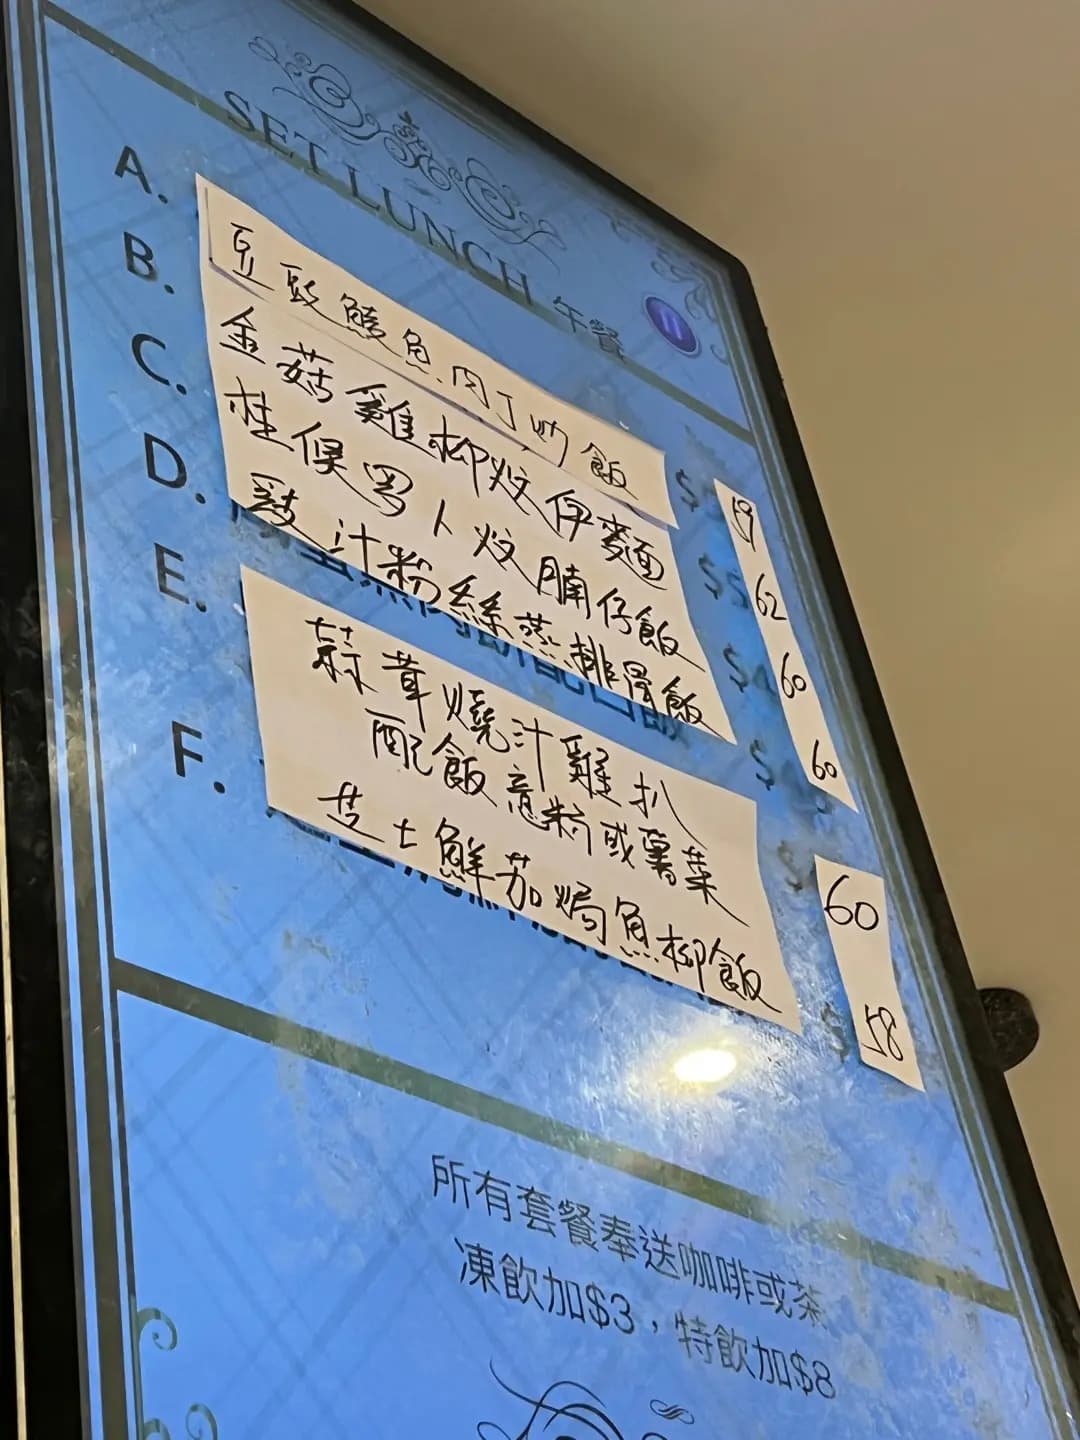 SET LUNCH 午餐
A. 豆豉鯪魚肉丁炒飯 $ 59
B. 金菇雞柳炆伊麵 $ 62
C. 桂侯罗卜炆腩仔飯 $ 60
D. 豉汁粉絲蒸排骨飯 $ 60
E. 蒜茸燒汁雞扒
配飯意粉或薯菜 $ 60
F. 芝士鮮茄焗魚柳飯 $ 58
所有套餐奉送咖啡或茶
凍飲加$3，特飲加$8